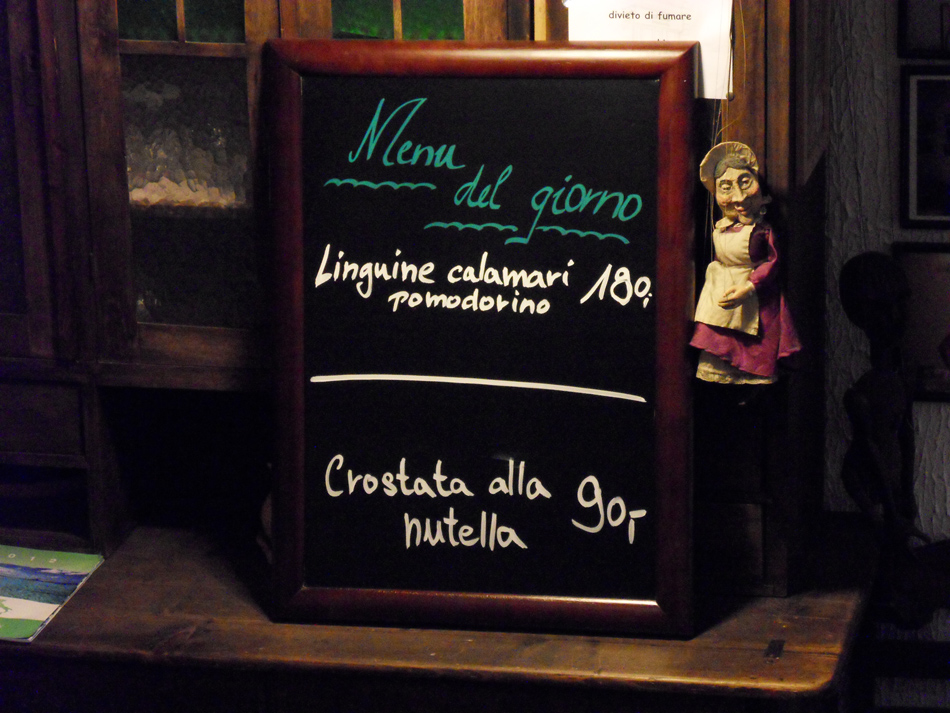 divieto di fumare
Menu
del giorno
Linguine calamari 180,-
pomodorino
Crostata alla 90,-
nutella